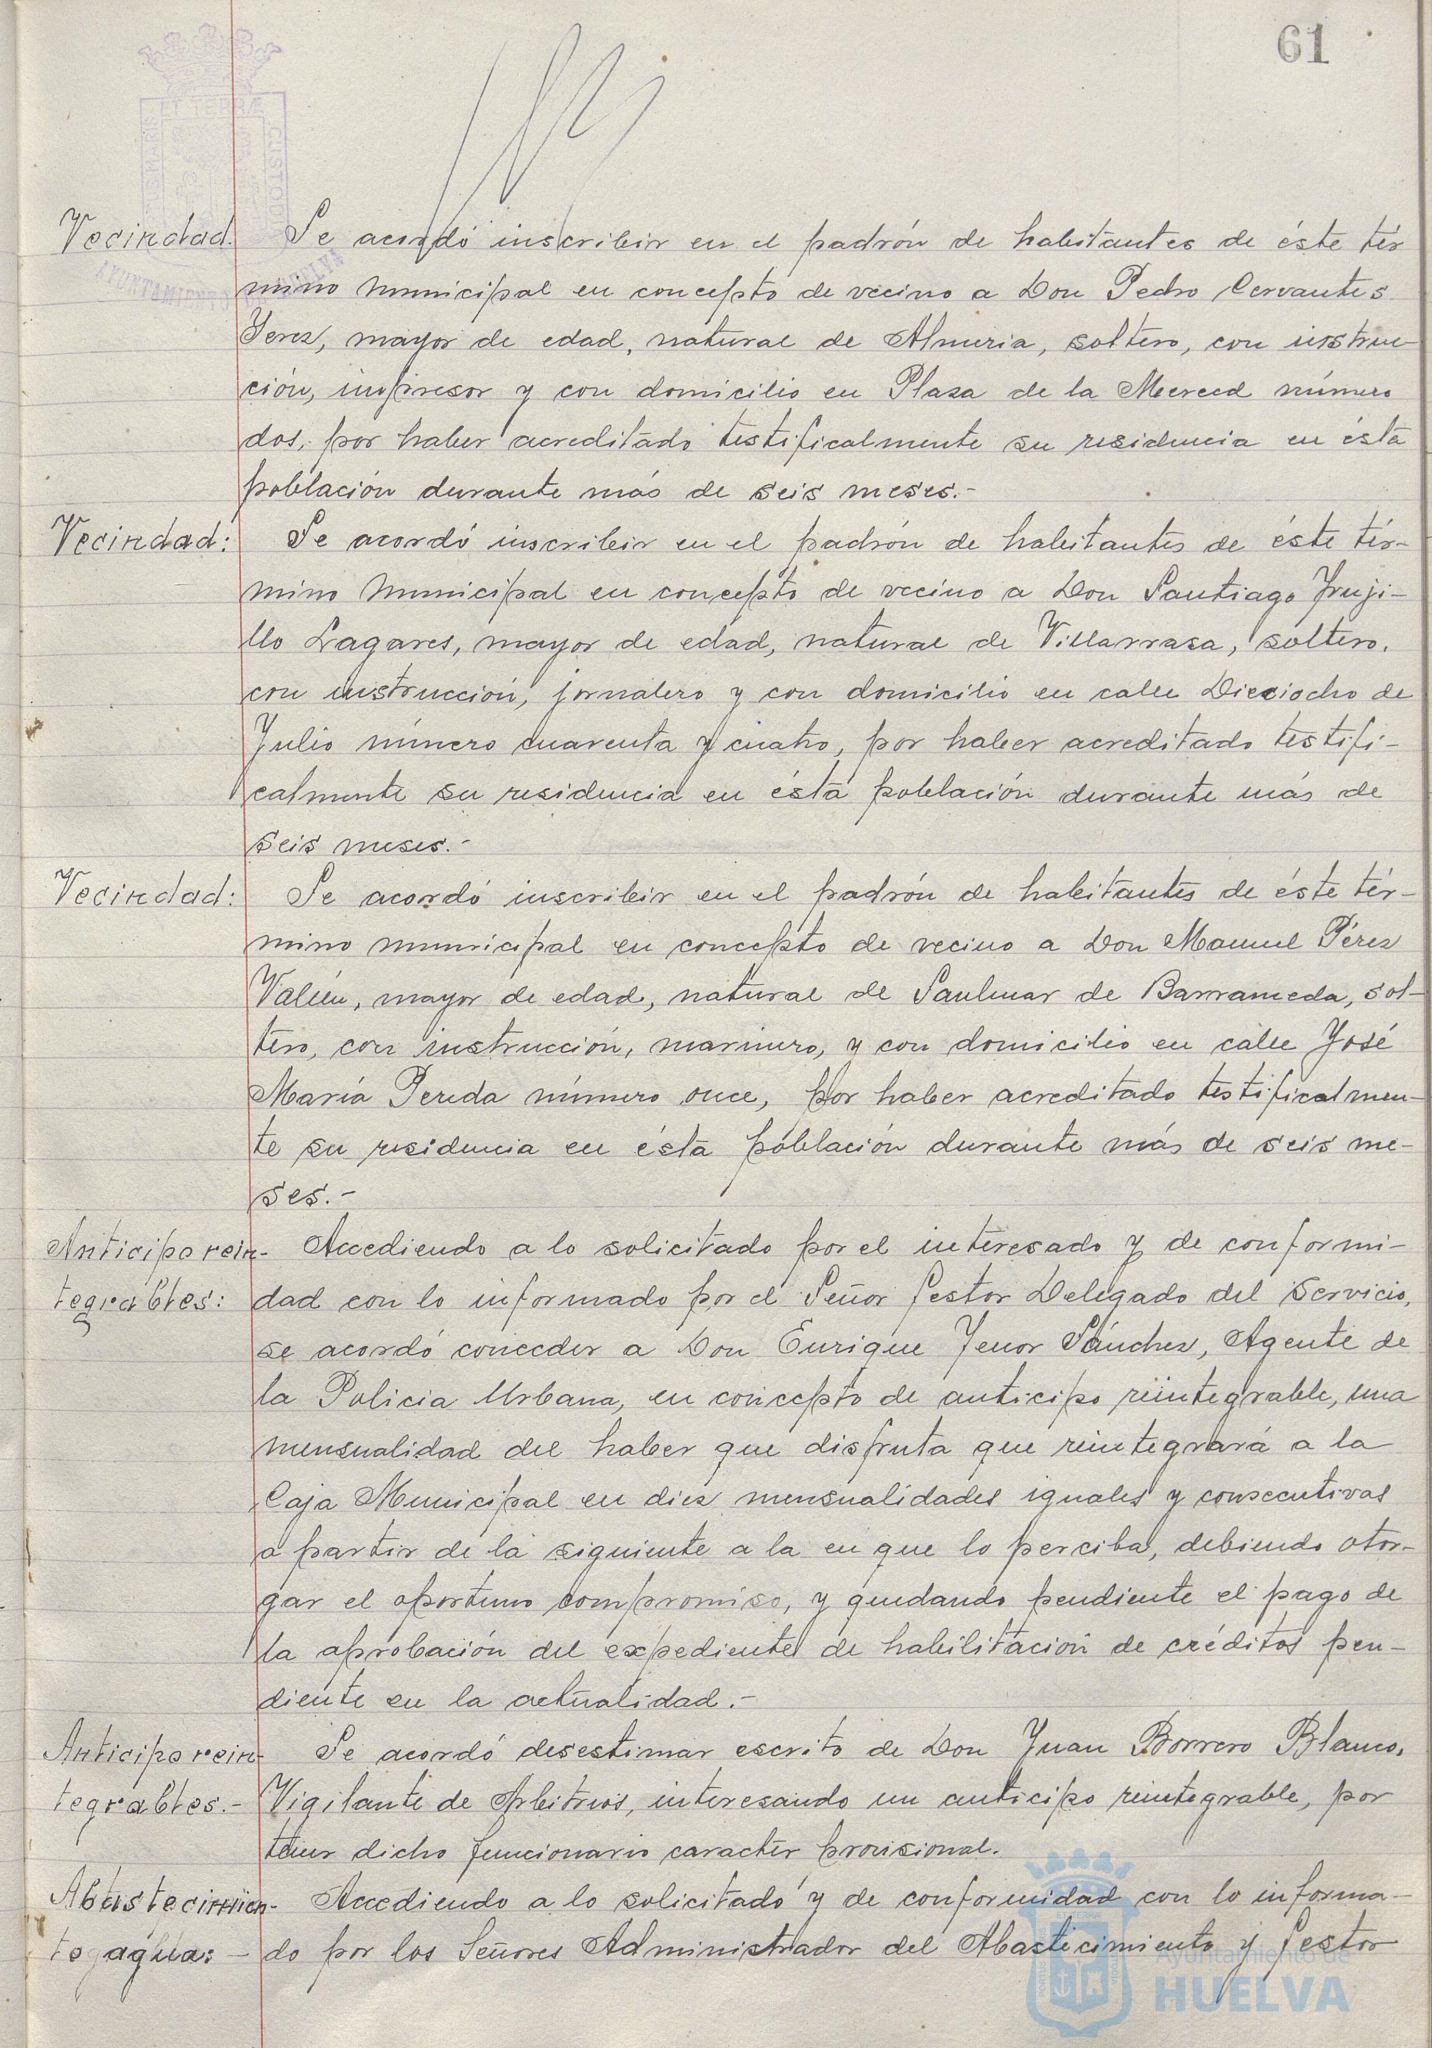 61
ET TERRÆ CUSTODI
AYUNTAMIENTO HUELVA
Vecindad. Se acordó inscribir en el padrón de habitantes de éste tér
mino municipal en concepto de vecino a Don Pedro Cervantes
Yerez, mayor de edad, natural de Almeria, soltero, con instruc-
ción, impresor y con domicilio en Plaza de la Merced número
dos, por haber acreditado testificalmente su residencia en ésta
población durante más de seis meses.-
Vecindad: Se acordó inscribir en el padrón de habitantes de éste tér-
mino municipal en concepto de vecino a Don Santiago Truji-
llo Lagares, mayor de edad, natural de Villarrasa, soltero,
con instrucción, jornalero y con domicilio en calle Dieciocho de
Julio número cuarenta y cuatro, por haber acreditado testifi-
calmente su residencia en ésta población durante más de
seis meses.-
Vecindad: Se acordó inscribir en el padrón de habitantes de éste tér-
mino municipal en concepto de vecino a Don Manuel Pérez
mayor de edad, natural de Sanlucar de Barrameda, sol-
tero, con instrucción, marinero, y con domicilio en calle José
María Pereda número once, por haber acreditado testificalmen-
te su residencia en ésta población durante más de seis me-
ses.-
Anticipo rein- Accediendo a lo solicitado por el interesado y de conformi-
tegrables: dad con lo informado por el Señor Gestor Delegado del Servicio,
se acordó conceder a Don Enrique Tenor Sánchez, Agente de
la Policia Urbana, en concepto de anticipo reintegrable, una
mensualidad del haber que disfruta que reintegrará a la
Caja Municipal en diez mensualidades iguales y consecutivas
a partir de la siguiente a la en que lo perciba, debiendo otor-
gar el oportuno compromiso, y quedando pendiente el pago de
la aprobación del expediente de habilitación de créditos pen-
diente en la actualidad.-
Anticipo rein- Se acordó desestimar escrito de Don Juan Borrero Blanco,
tegrables.- Vigilante de Arbitrios, interesando un anticipo reintegrable, por
tener dicho funcionario caracter provisional.
Abastecimien- Accediendo a lo solicitado y de conformidad con lo informa-
to agua: - do por los Señores Administrador del Abastecimiento y Gestor
Ayuntamiento de
HUELVA